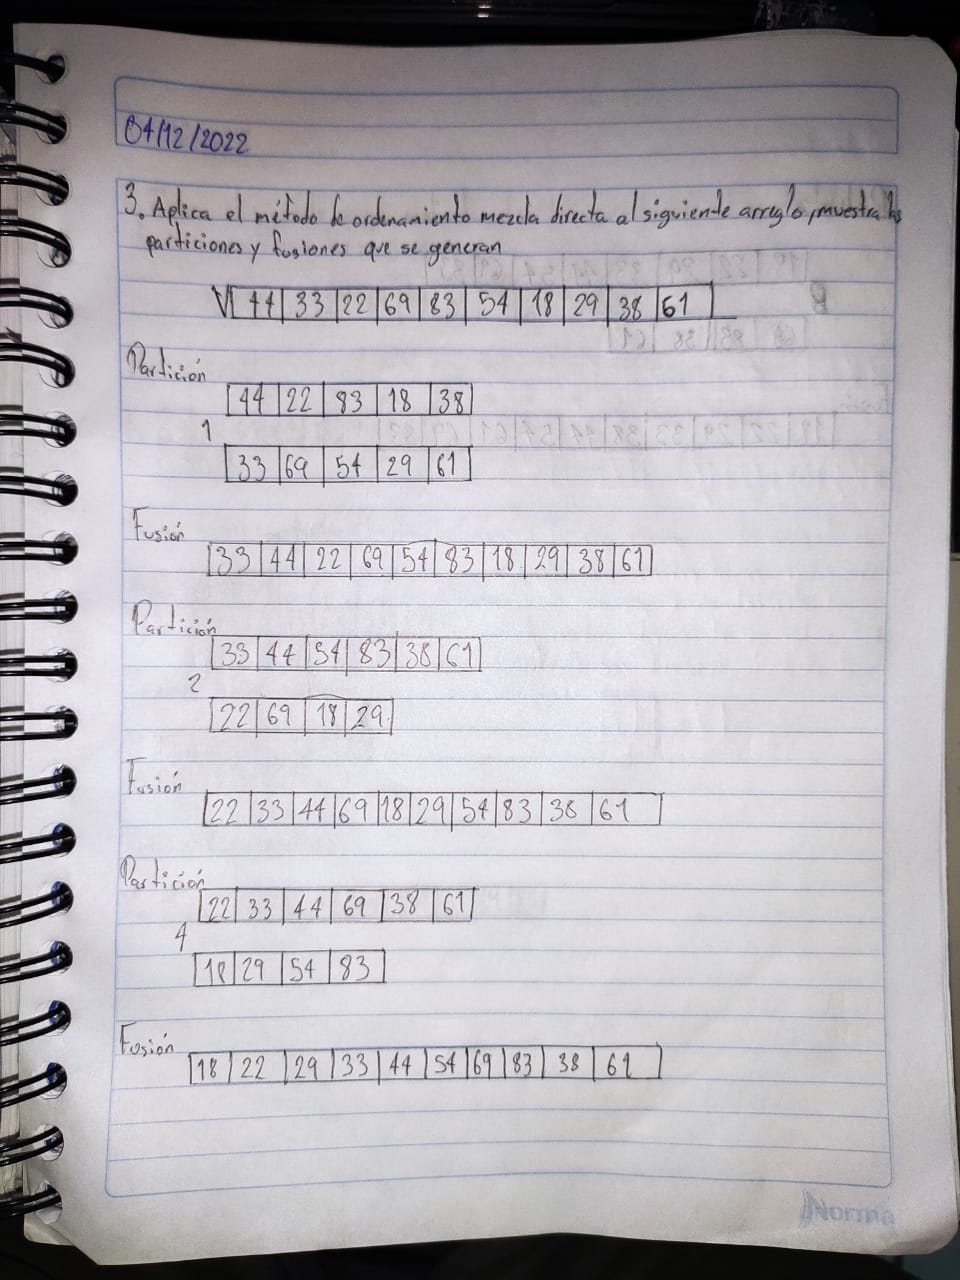 04/12/2022
3. Aplica el método de ordenamiento mezcla directa al siguiente arreglo, muestra las
particiones y fusiones que se generan
V| 44 | 33 | 22 | 69 | 83 | 54 | 18 | 29 | 38 | 61
Partición
44 | 22 | 83 | 18 | 38
1
33 | 69 | 54 | 29 | 61
Fusión
33 | 44 | 22 | 69 | 54 | 83 | 18 | 29 | 38 | 61
Partición
33 | 44 | 54 | 83 | 38 | 61
2
22 | 69 | 18 | 29
Fusión
22 | 33 | 44 | 69 | 18 | 29 | 54 | 83 | 38 | 61
Partición
22 | 33 | 44 | 69 | 38 | 61
4
18 | 29 | 54 | 83
Fusión
18 | 22 | 29 | 33 | 44 | 54 | 69 | 83 | 38 | 61
Norma